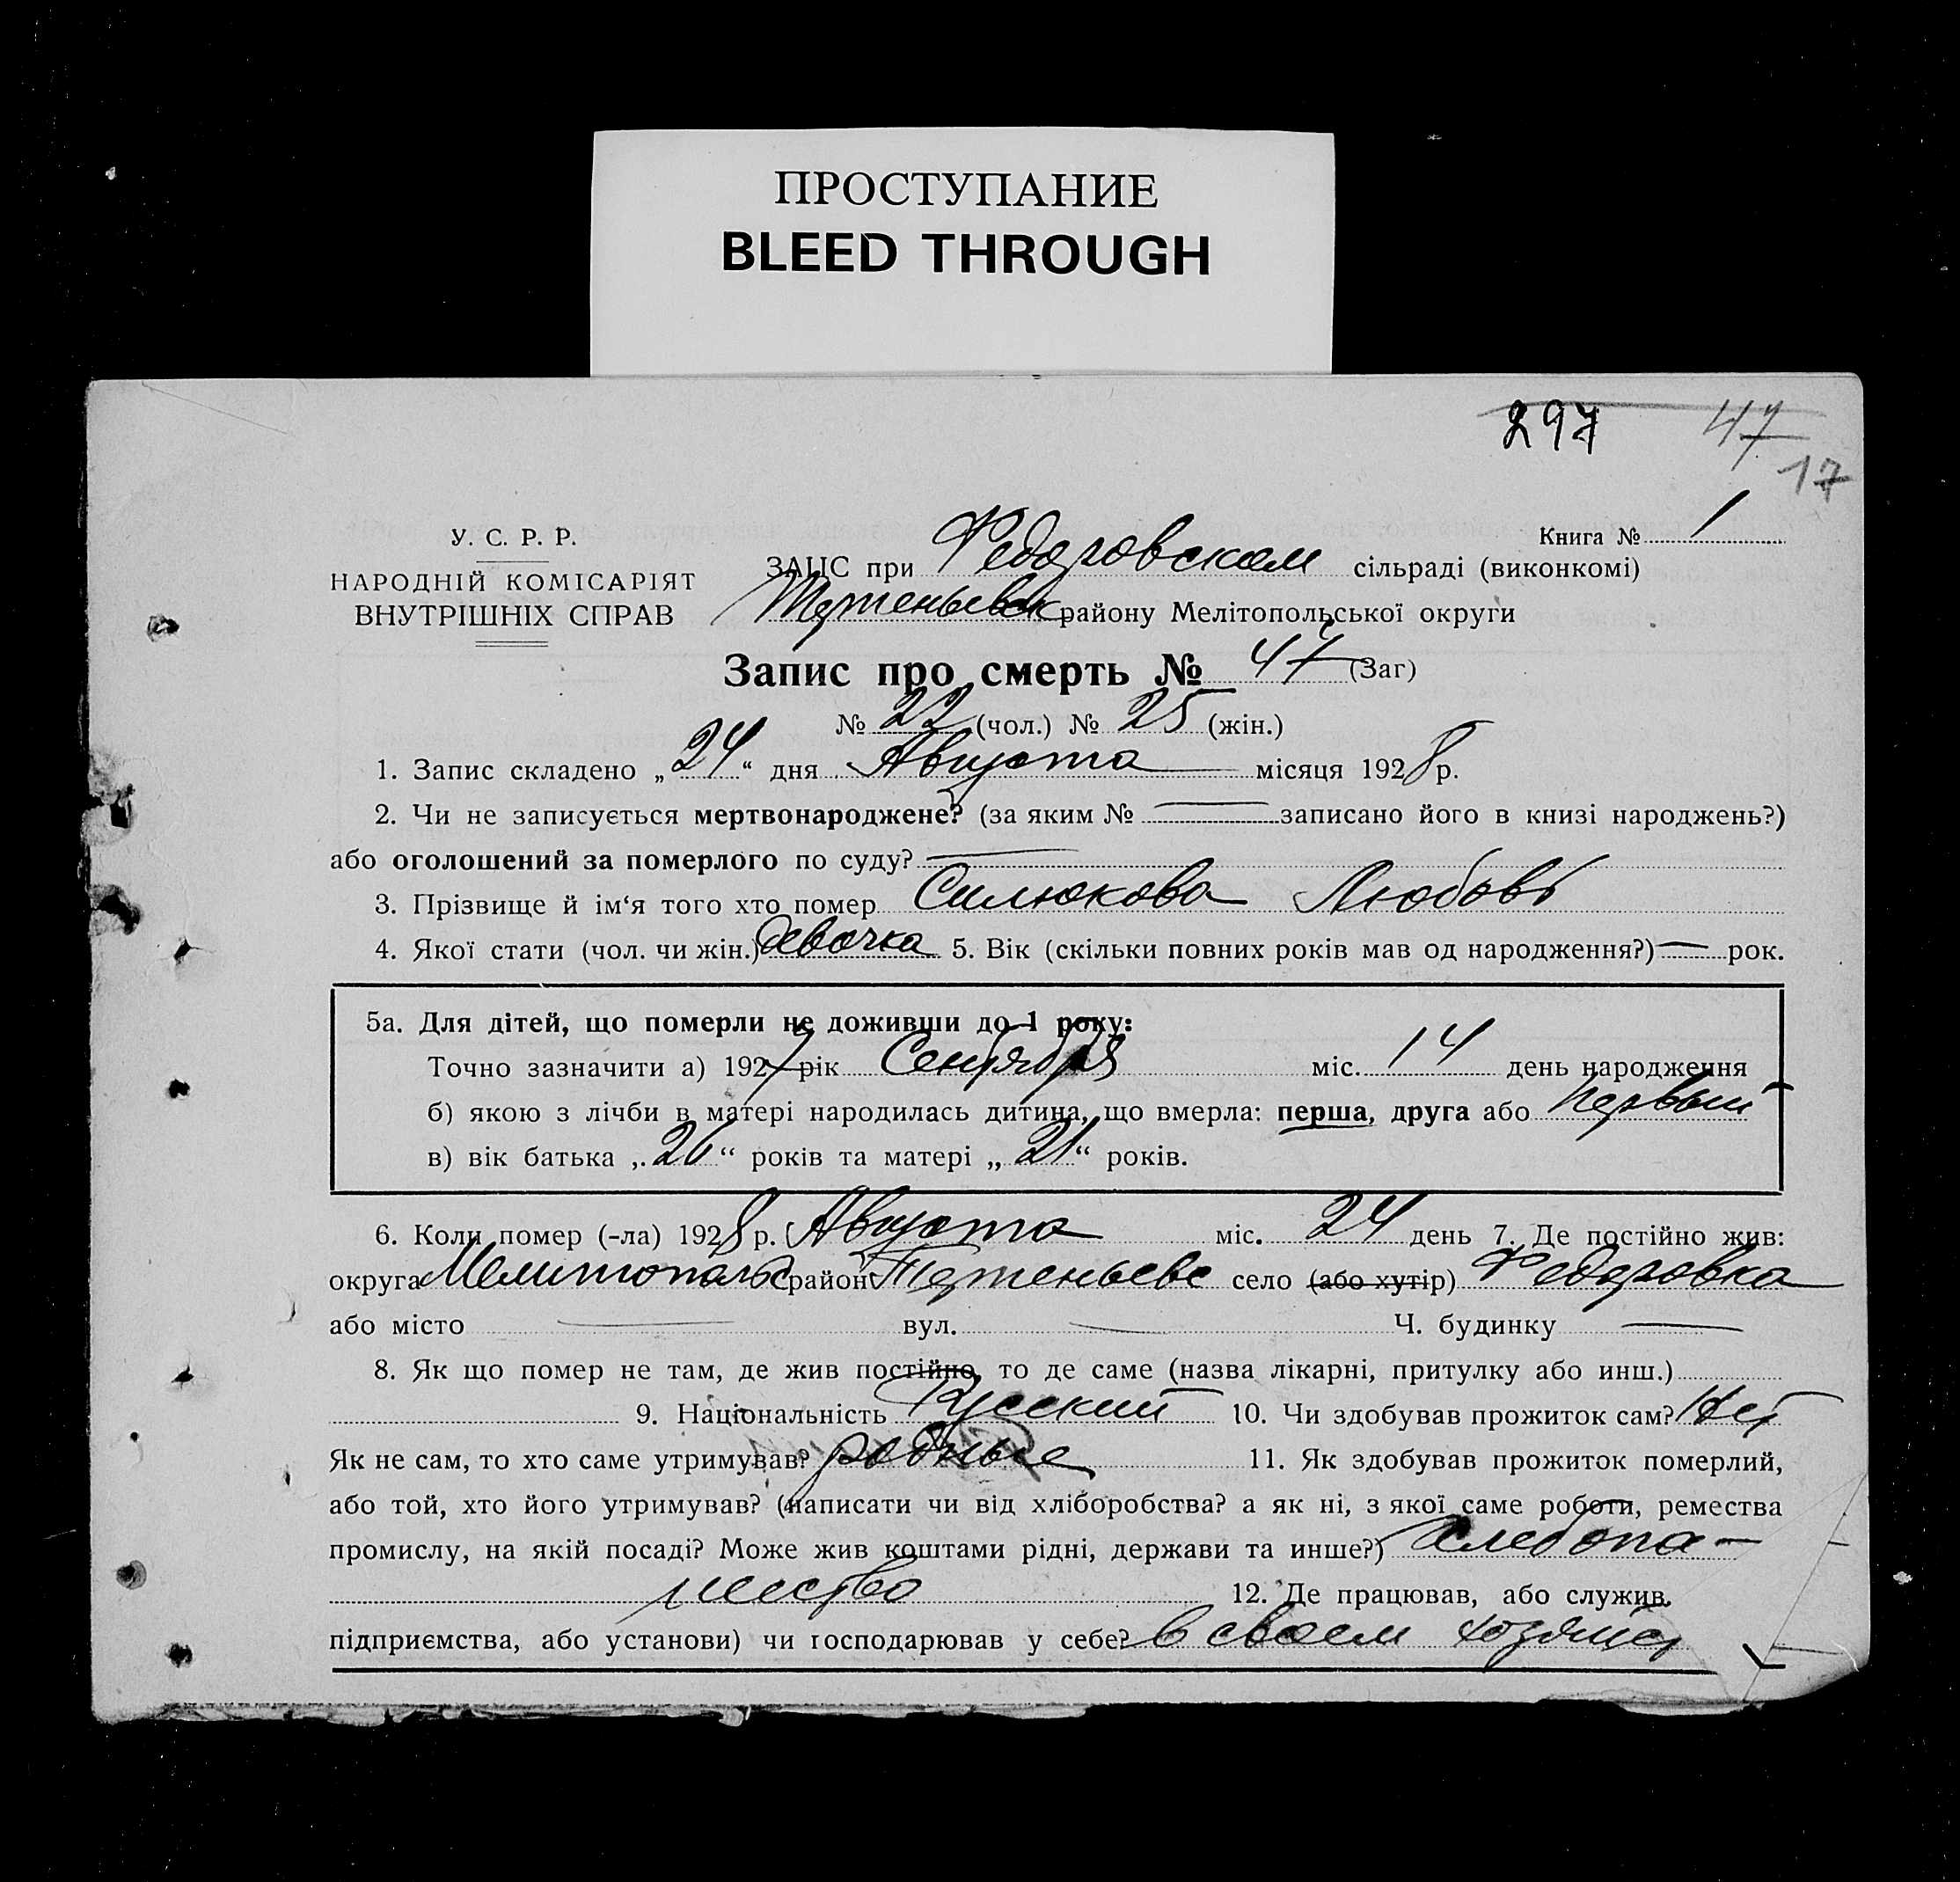 ПРОСТУПАНИЕ
BLEED THROUGH
297 47
17
У. С. Р. Р.
НАРОДНІЙ КОМІСАРІЯТ
ВНУТРІШНІХ СПРАВ
Книга № 1
ЗАЦС при Федоровском сільраді (виконкомі)
району Мелітопольської округи
Запис про смерть № 47 (Заг)
№ 22 (чол.) № 25 (жін.)
1. Запис складено „ 24 “ дня Августа місяця 1928 р.
2. Чи не записується мертвонароджене? (за яким № — записано його в книзі народжень?)
або оголошений за померлого по суду? —
3. Прізвище й ім‘я того хто помер Силюкова Любовь
4. Якої стати (чол. чи жін.) девочка 5. Вік (скільки повних років мав од народження?) — рок.
5а. Для дітей, що померли не доживши до 1 року:
Точно зазначити а) 1927 рік Сентября міс. 14 день народження
б) якою з лічби в матері народилась дитина, що вмерла: перша, друга або первый
в) вік батька „ 26 “ років та матері „ 21 “ років.
6. Коли помер (-ла) 1928 р. Августа міс. 24 день 7. Де постійно жив:
округа Мелитопольс район село (або хутір) Федоровка
або місто — вул. — Ч. будинку —
8. Як що помер не там, де жив постійно, то де саме (назва лікарні, притулку або инш.)
9. Національність Русский 10. Чи здобував прожиток сам? Нет
Як не сам, то хто саме утримував? родные 11. Як здобував прожиток померлий,
або той, хто його утримував? (написати чи від хліборобства? а як ні, з якої саме роботи, ремества
промислу, на якій посаді? Може жив коштами рідні, держави та инше?) хлебопа-
шество 12. Де працював, або служив
підприємства, або установи) чи господарював у себе? в своем хозяйст